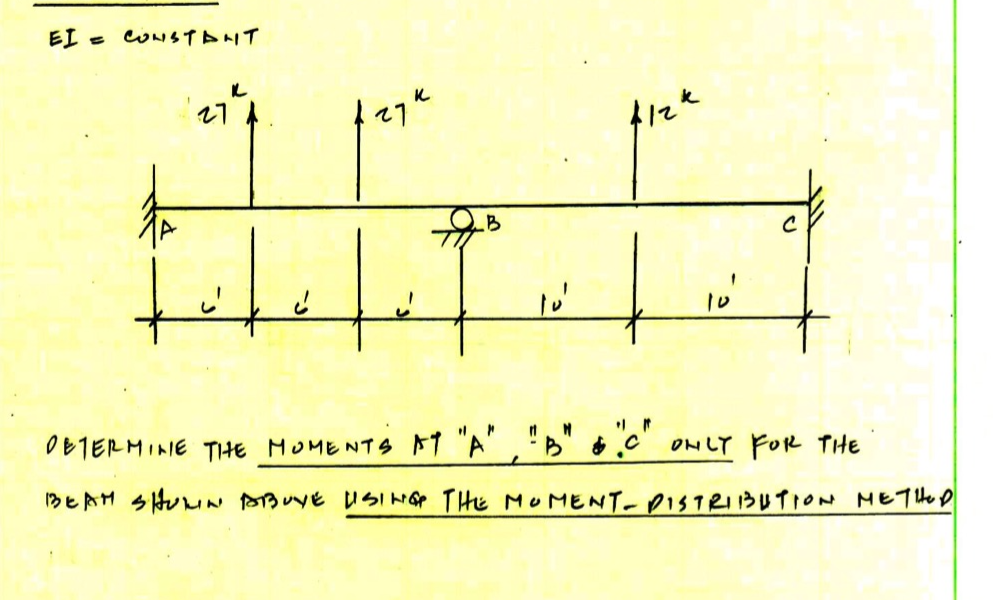 EI = CONSTANT
27k 27k 12k
A B C
6' 6' 6' 10' 10'
DETERMINE THE MOMENTS AT "A", "B" & "C" ONLY FOR THE
BEAM SHOWN ABOVE USING THE MOMENT-DISTRIBUTION METHOD